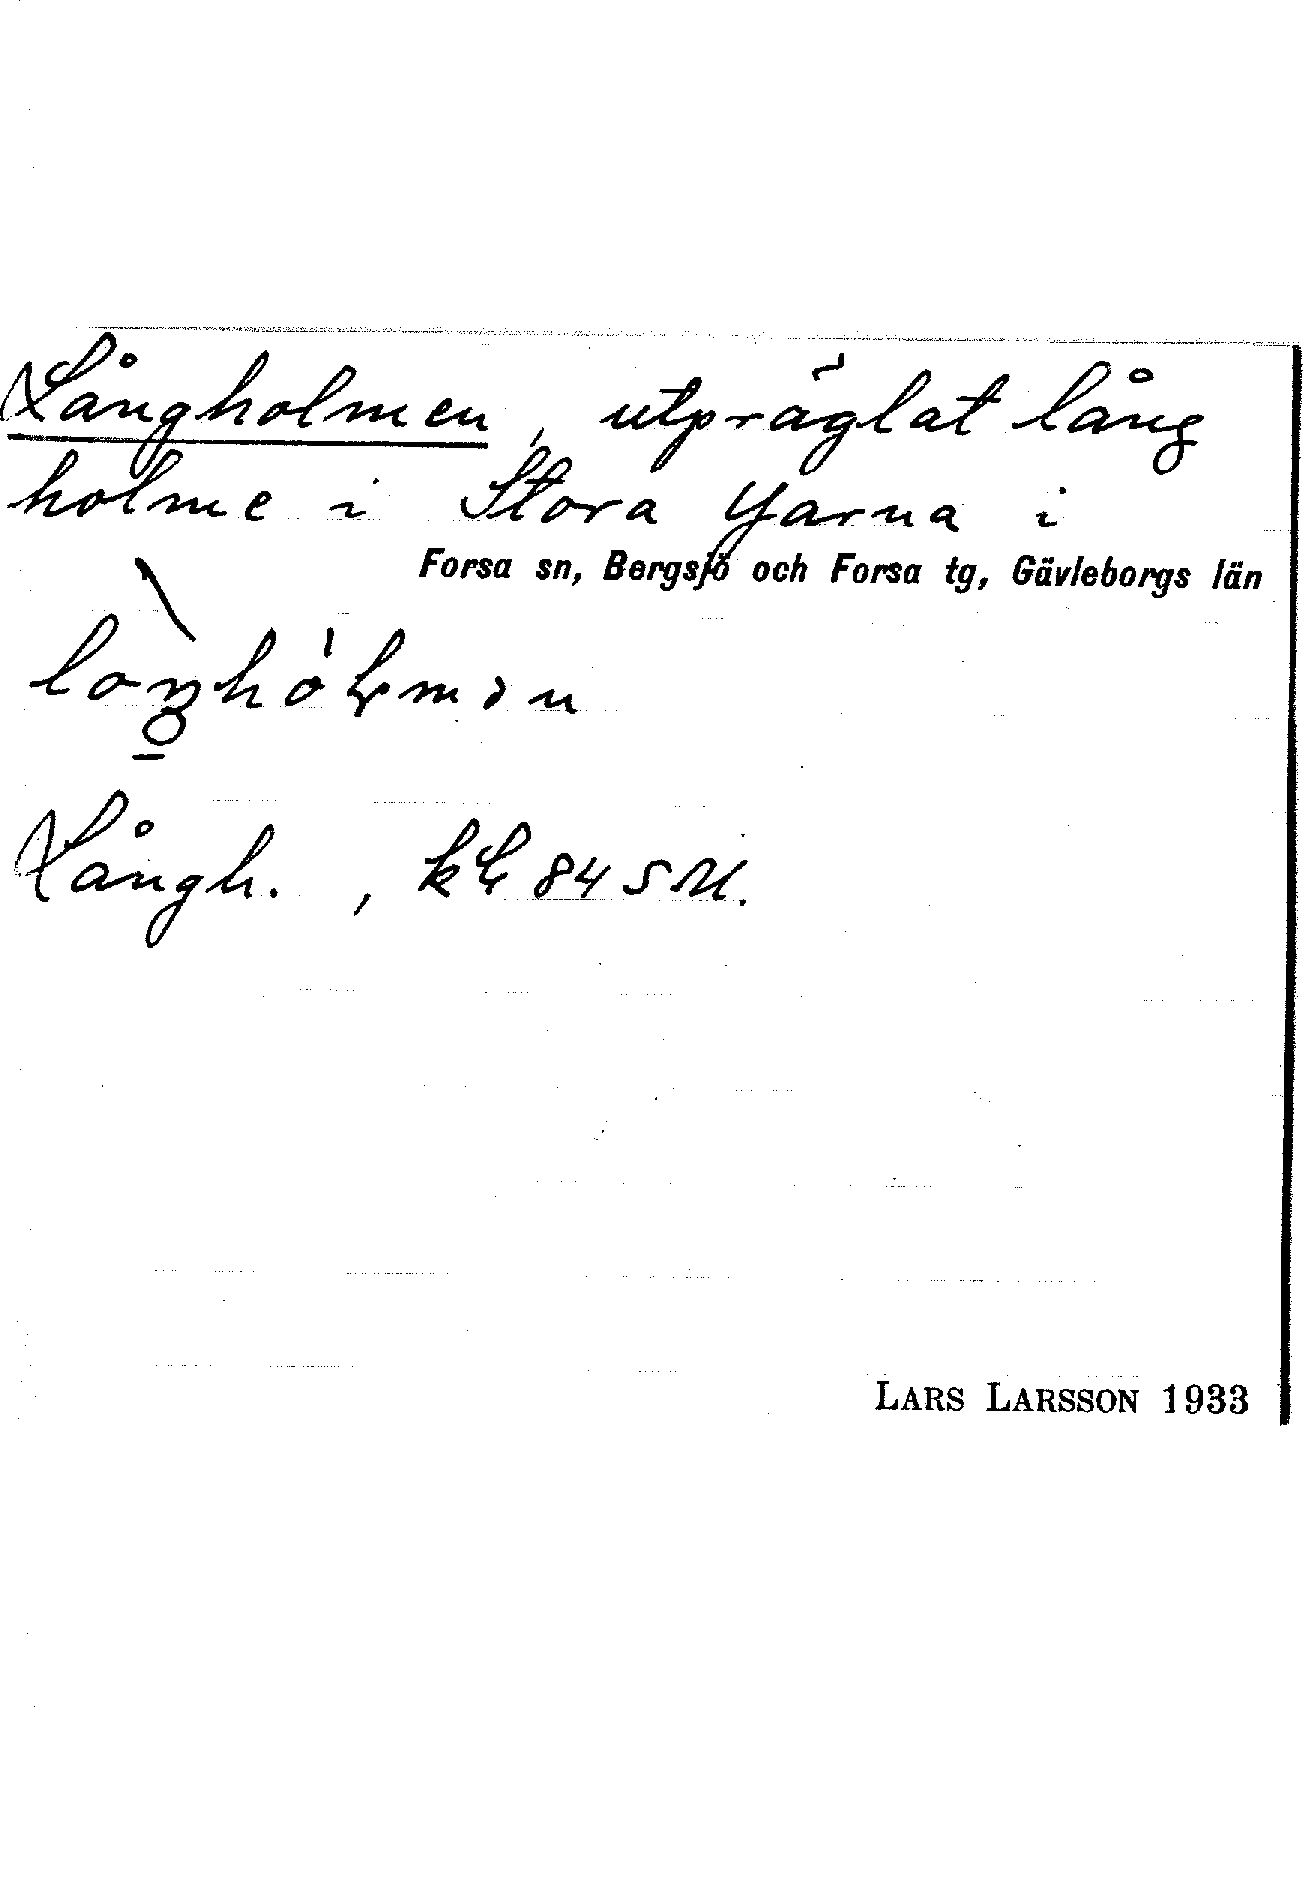 Långholmen, utpräglat lång
holme i Stora Yarna i
Forsa sn, Bergsjö och Forsa tg, Gävleborgs län
Långh.,
LARS LARSSON 1933